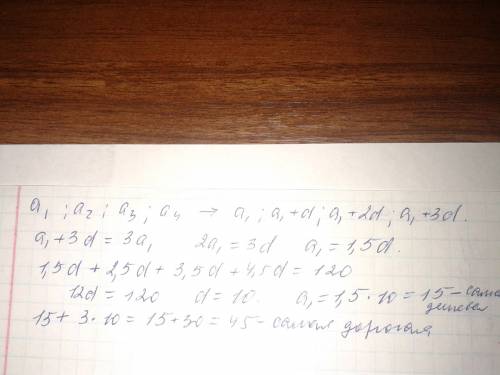 a₁ ; a₂ ; a₃ ; a₄ → a₁ ; a₁+d ; a₁+2d ; a₁+3d.
a₁ + 3d = 3a₁ 2a₁ = 3d a₁ = 1,5d.
1,5d + 2,5d + 3,5d + 4,5d = 120
12d = 120 d = 10. a₁ = 1,5 · 10 = 15 – самая
дешевая
15 + 3 · 10 = 15 + 30 = 45 – самая дорогая